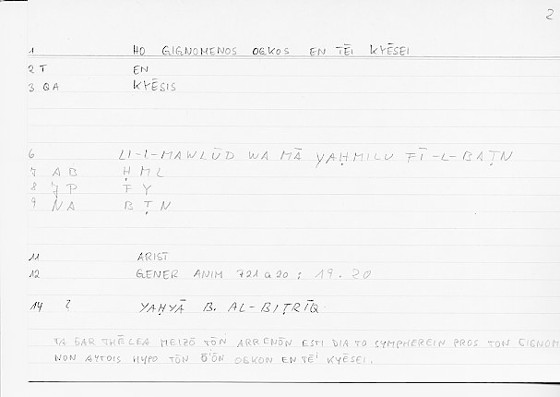 2
1 HO GIGNOMENOS OGKOS EN TĒI KYĒSEI
2 T EN
3 QA KYĒSIS
6 LI-L-MAWLŪD WA MĀ YAḤMILU FĪ-L-BAṬN
7 AB ḤML
8 JP FY
9 NA BṬN
11 ARIST
12 GENER ANIM 721a20 ; 19.20
14 2 YAḤYĀ B. AL-BIṬRĪQ
TA GAR THĒLEA MEIZŌ TŌN ARRENŌN ESTI DIA TO SYMPHEREIN PROS TON GIGNOM
NON AYTOIS HYPO TŌN ŌIŌN OGKON EN TĒI KYĒSEI.